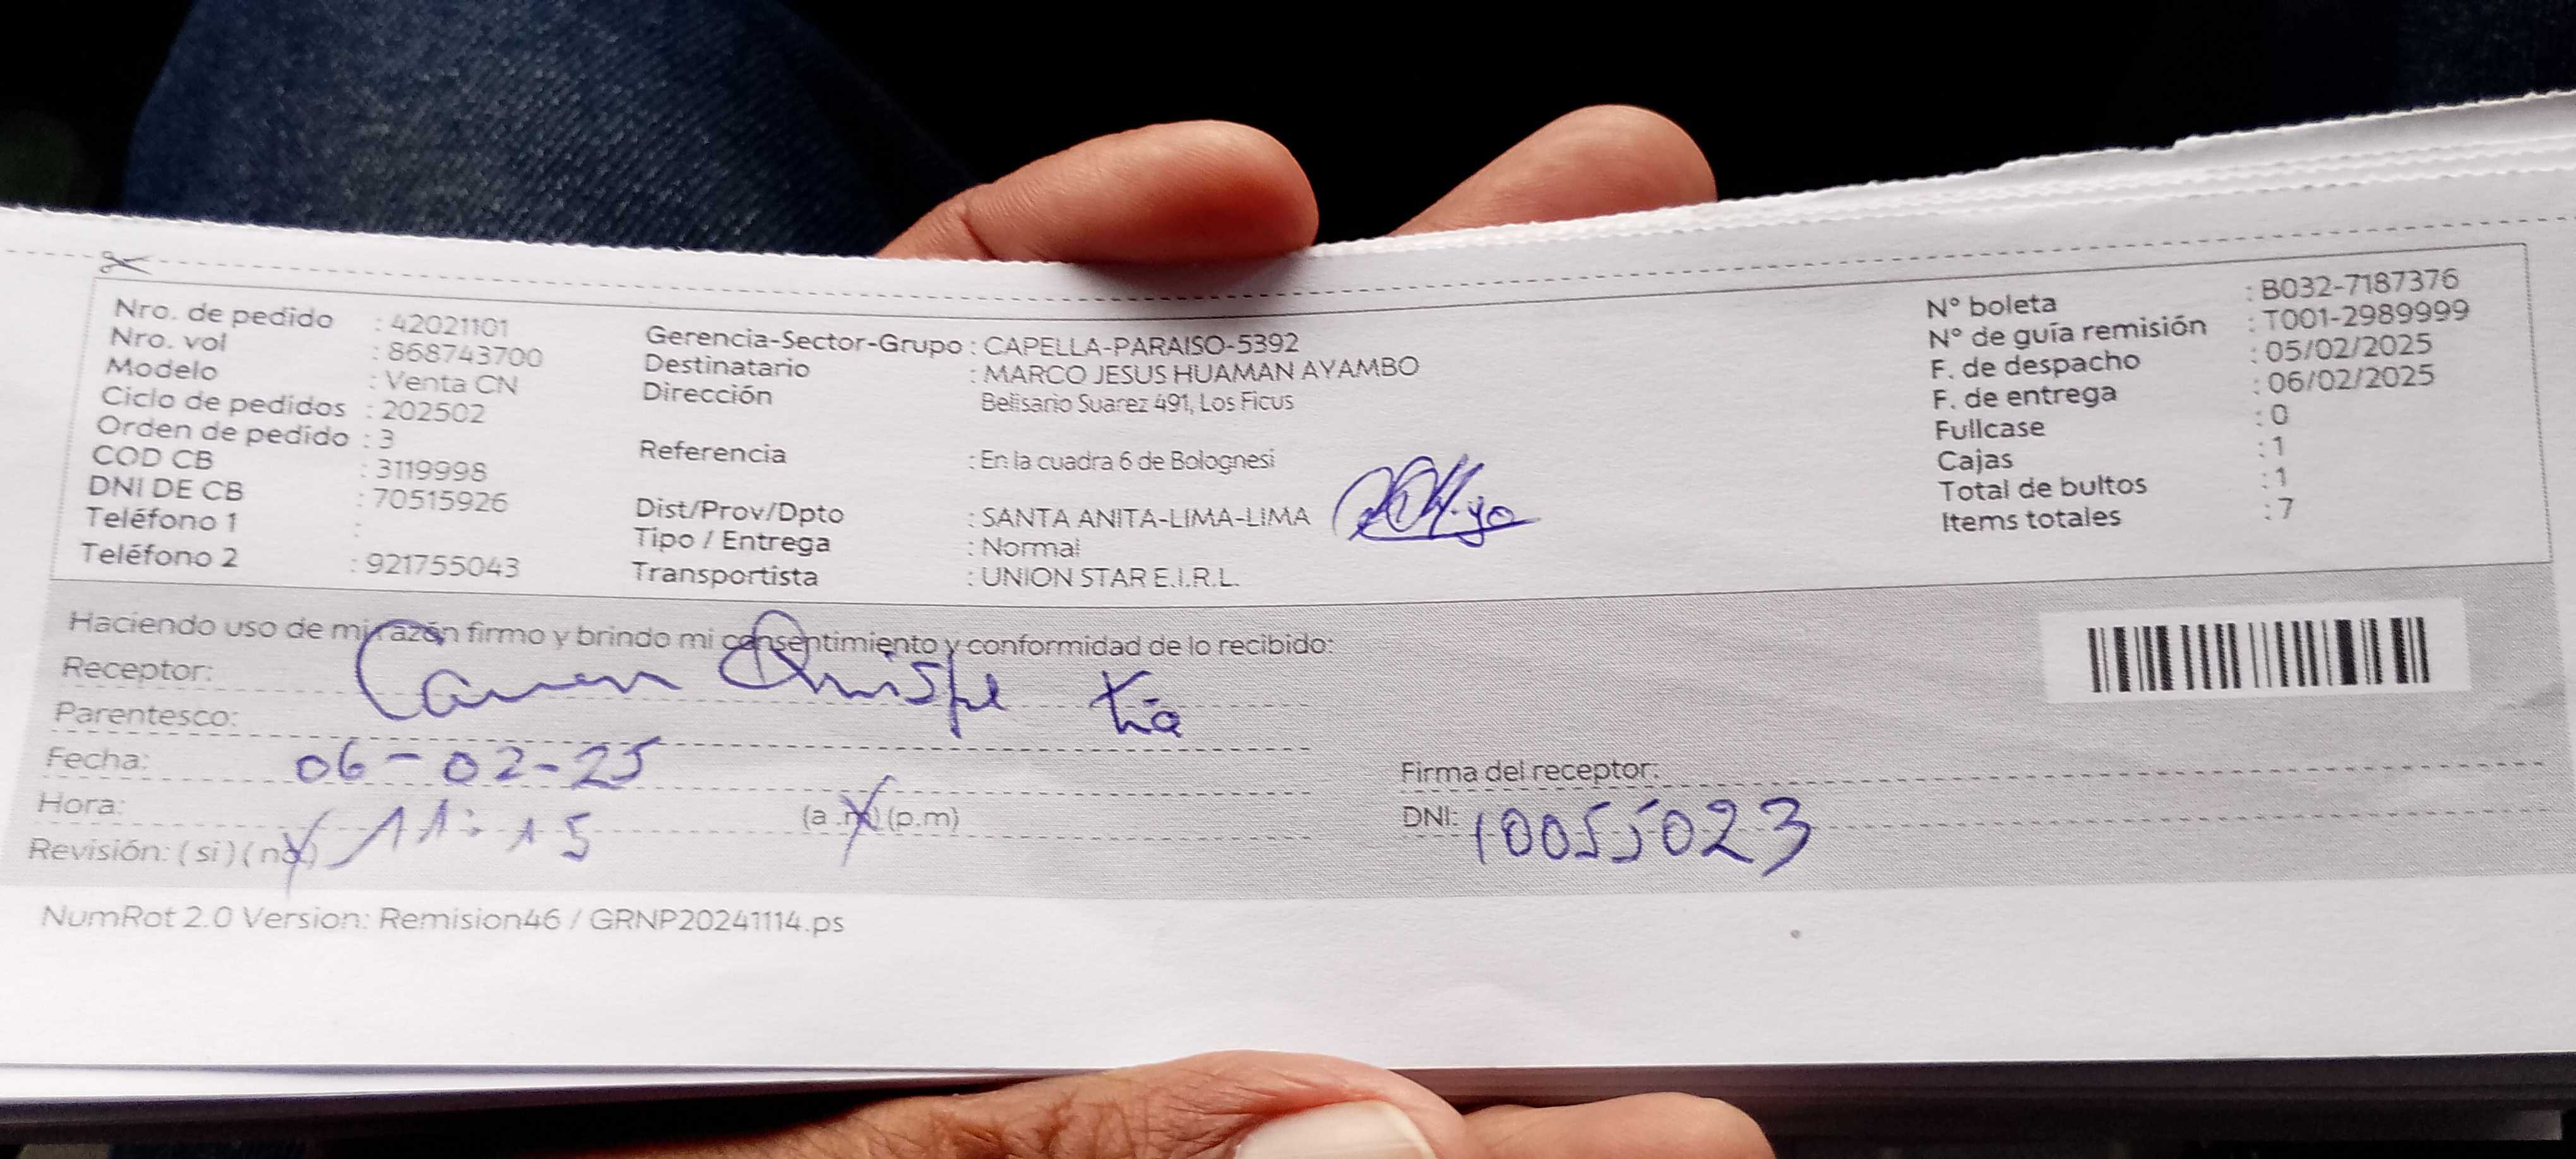 Nro. de pedido : 42021101
Nro. vol : 868743700
Modelo : Venta CN
Ciclo de pedidos : 202502
Orden de pedido : 3
COD CB : 3119998
DNI DE CB : 70515926
Teléfono 1 :
Teléfono 2 : 921755043
Gerencia-Sector-Grupo : CAPELLA-PARAISO-5392
Destinatario : MARCO JESUS HUAMAN AYAMBO
Dirección Belisario Suarez 491, Los Ficus
Referencia : En la cuadra 6 de Bolognesi
Dist/Prov/Dpto : SANTA ANITA-LIMA-LIMA
Tipo / Entrega : Normal
Transportista : UNION STAR E.I.R.L.
N° boleta : B032-7187376
N° de guía remisión : T001-2989999
F. de despacho : 05/02/2025
F. de entrega : 06/02/2025
Fullcase : 0
Cajas : 1
Total de bultos : 1
Items totales : 7
Haciendo uso de mi razón firmo y brindo mi consentimiento y conformidad de lo recibido:
Receptor: Carmen Quispe tía
Parentesco:
Fecha: 06-02-25
Hora: 11:15 (a.m) (p.m)
Revisión: (si) (no)
Firma del receptor:
DNI: 10055023
NumRot 2.0 Version: Remision46 / GRNP20241114.ps